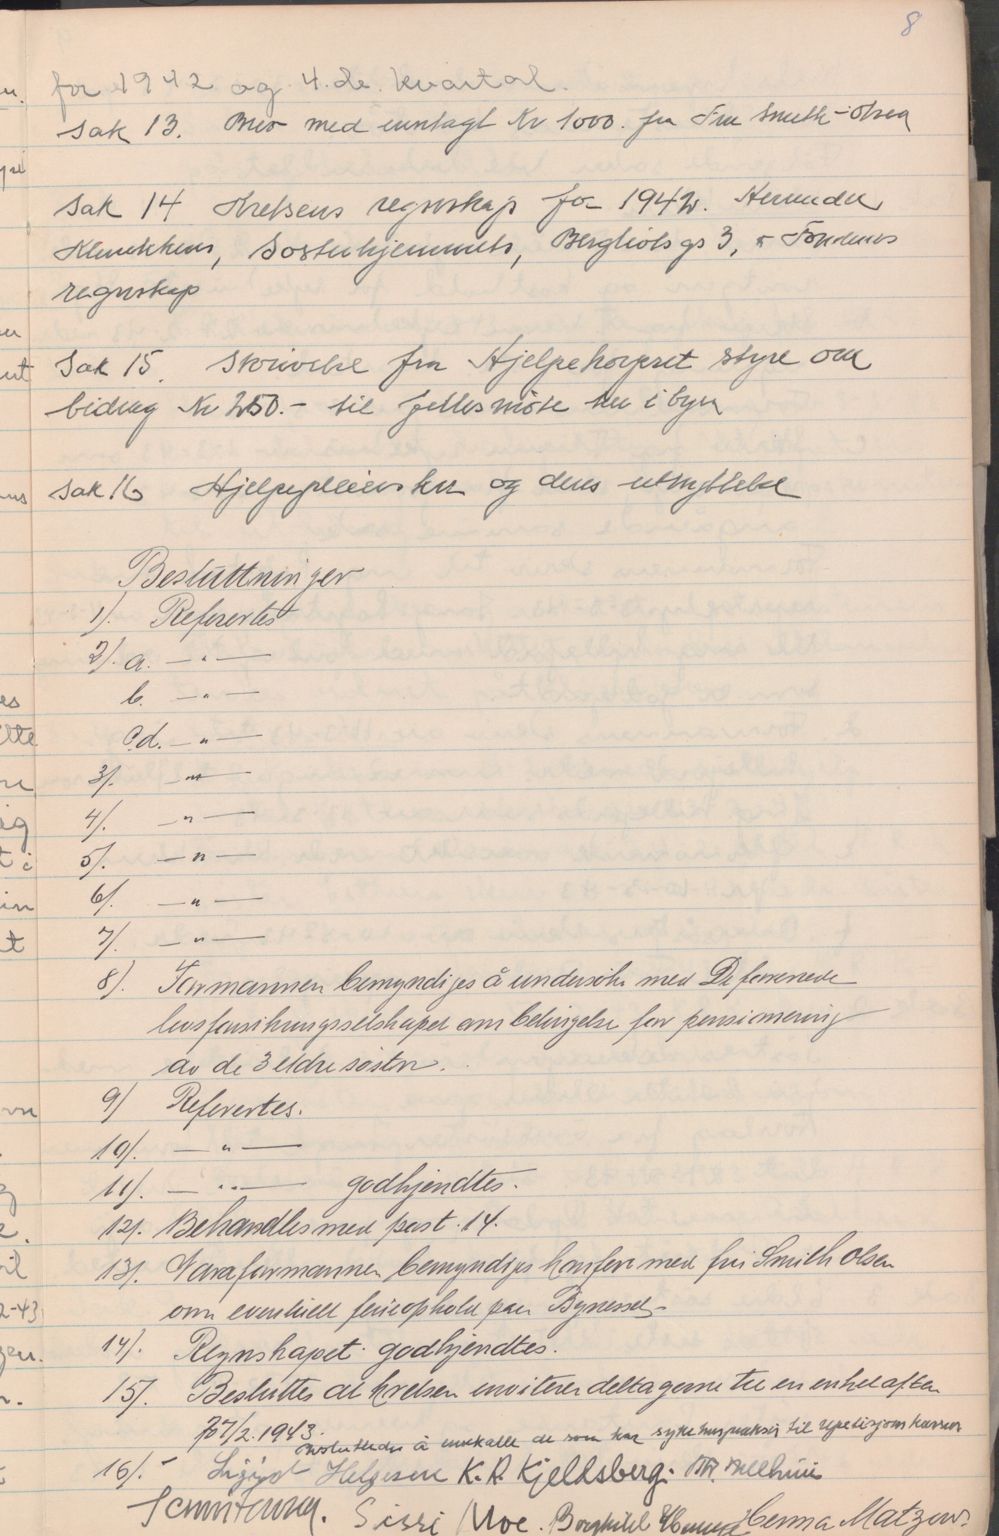 8
for 1942 og 4.de kvartal.
Sak 13. Brev med inntagt Kr 1000. fra Fru Smith-Olsen
Sak 14 Kretsens regnskap for 1942. Herunder
Klinikkens, Søsterhjemmets, Bergliots gs 3, Fondenes
regnskap
Sak 15. Skrivelse fra Hjelpekorpset styre om
bidrag Kr 250.- til fellesmøte her i byen
Sak 16 Hjelpepleiersker og deres utnyttelse
Besluttninger
1). Refertes
2). a. — " —
b. — " —
c.d. — " —
3). — " —
4). — " —
5). — " —
6). — " —
7). — " —
8). Formannen bemyndiges å undersøke med De forenede
livsforsikringsselskaper om betingelse for pensionering
av de 3 eldre søstre.
9) Refertes.
10). — " —
11). — " — godkjendtes.
12). Behandles med post. 14.
13). Varaformannen bemyndiges konfere med fru Smith Olsen
om eventuelt ferieophold paa Byneset
14). Regnskapet godkjendtes.
15). Besluttes at kretsen inviterer deltagerne til en enkel aften
7/2. 1943.
16). Besluttedes å innkalle de som har sykehuspraksis til repetisjons kursus
Helgesen K. R. Kjeldsberg.
Sissi Moe. Borghild Herma Matzow.